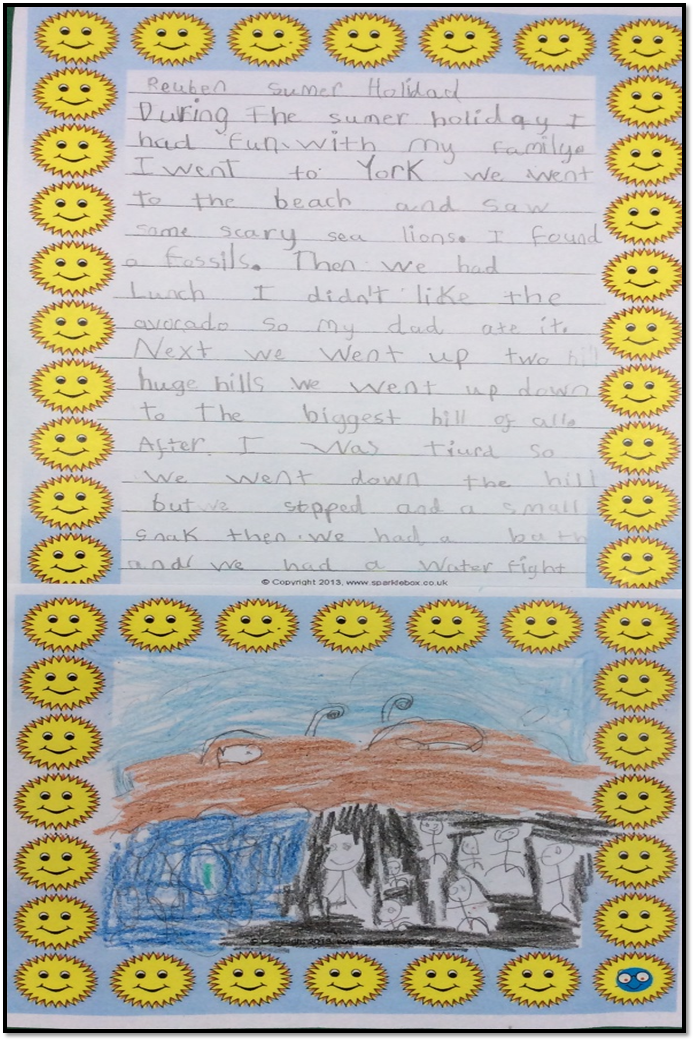 Reuben sumer Holidad
During The sumer holiday I
had fun. with my familye
I went to York we went
to the beach and saw
some scary sea lions. I found
a fossils. Then we had
Lunch I didn't like the
avocado so my dad ate it.
Next we went up two hill
huge hills we went up down
to The biggest hill of all.
After I was tiurd so
we went down the hill
but we stpped and a small
snak then we had a bath
and we had a water fight
© Copyright 2013, www.sparklebox.co.uk
© Copyright 2013